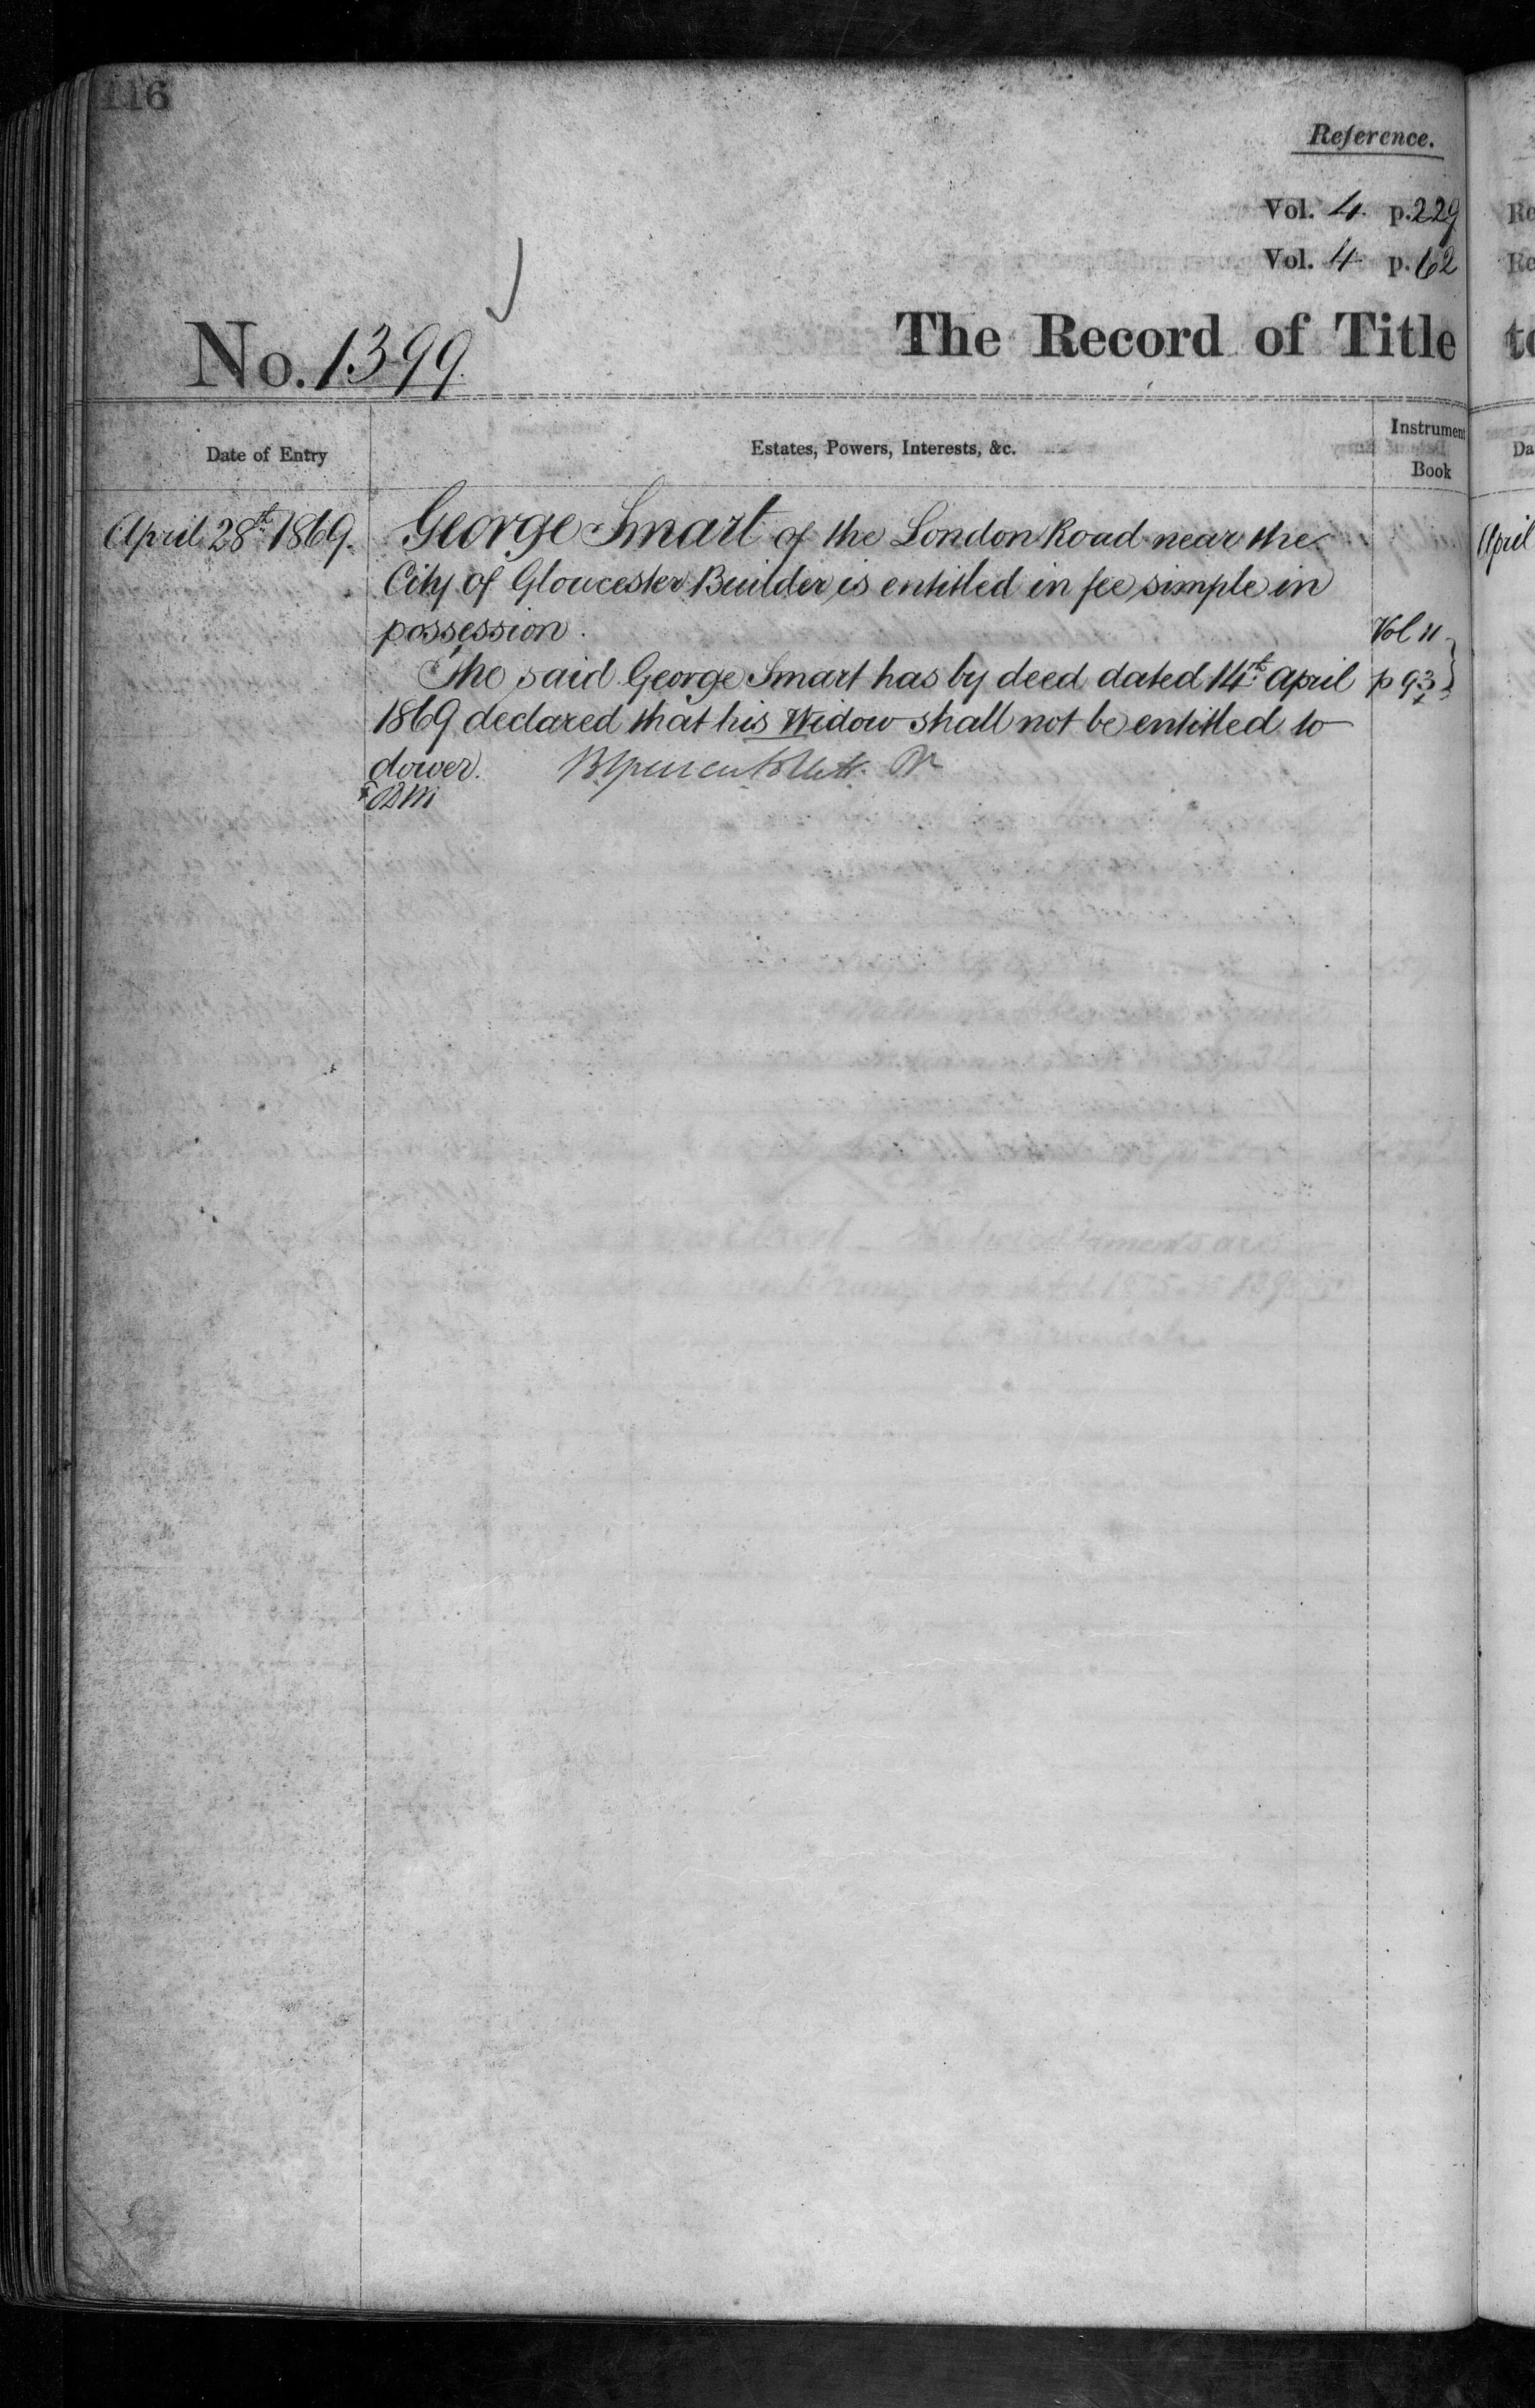 116
Reference.
Vol. 4 p. 229
Vol. 4 p. 62
No. 1399.
The Record of Title
Date of Entry
Estates, Powers, Interests, &c.
Instrument
Book
April 28th 1869.
George Smart of the London Road near the
City of Gloucester Builder is entitled in fee simple in
possession.
Vol 11
The said George Smart has by deed dated 14th April
p 93
1869 declared that his Widow shall not be entitled to
dower.
April